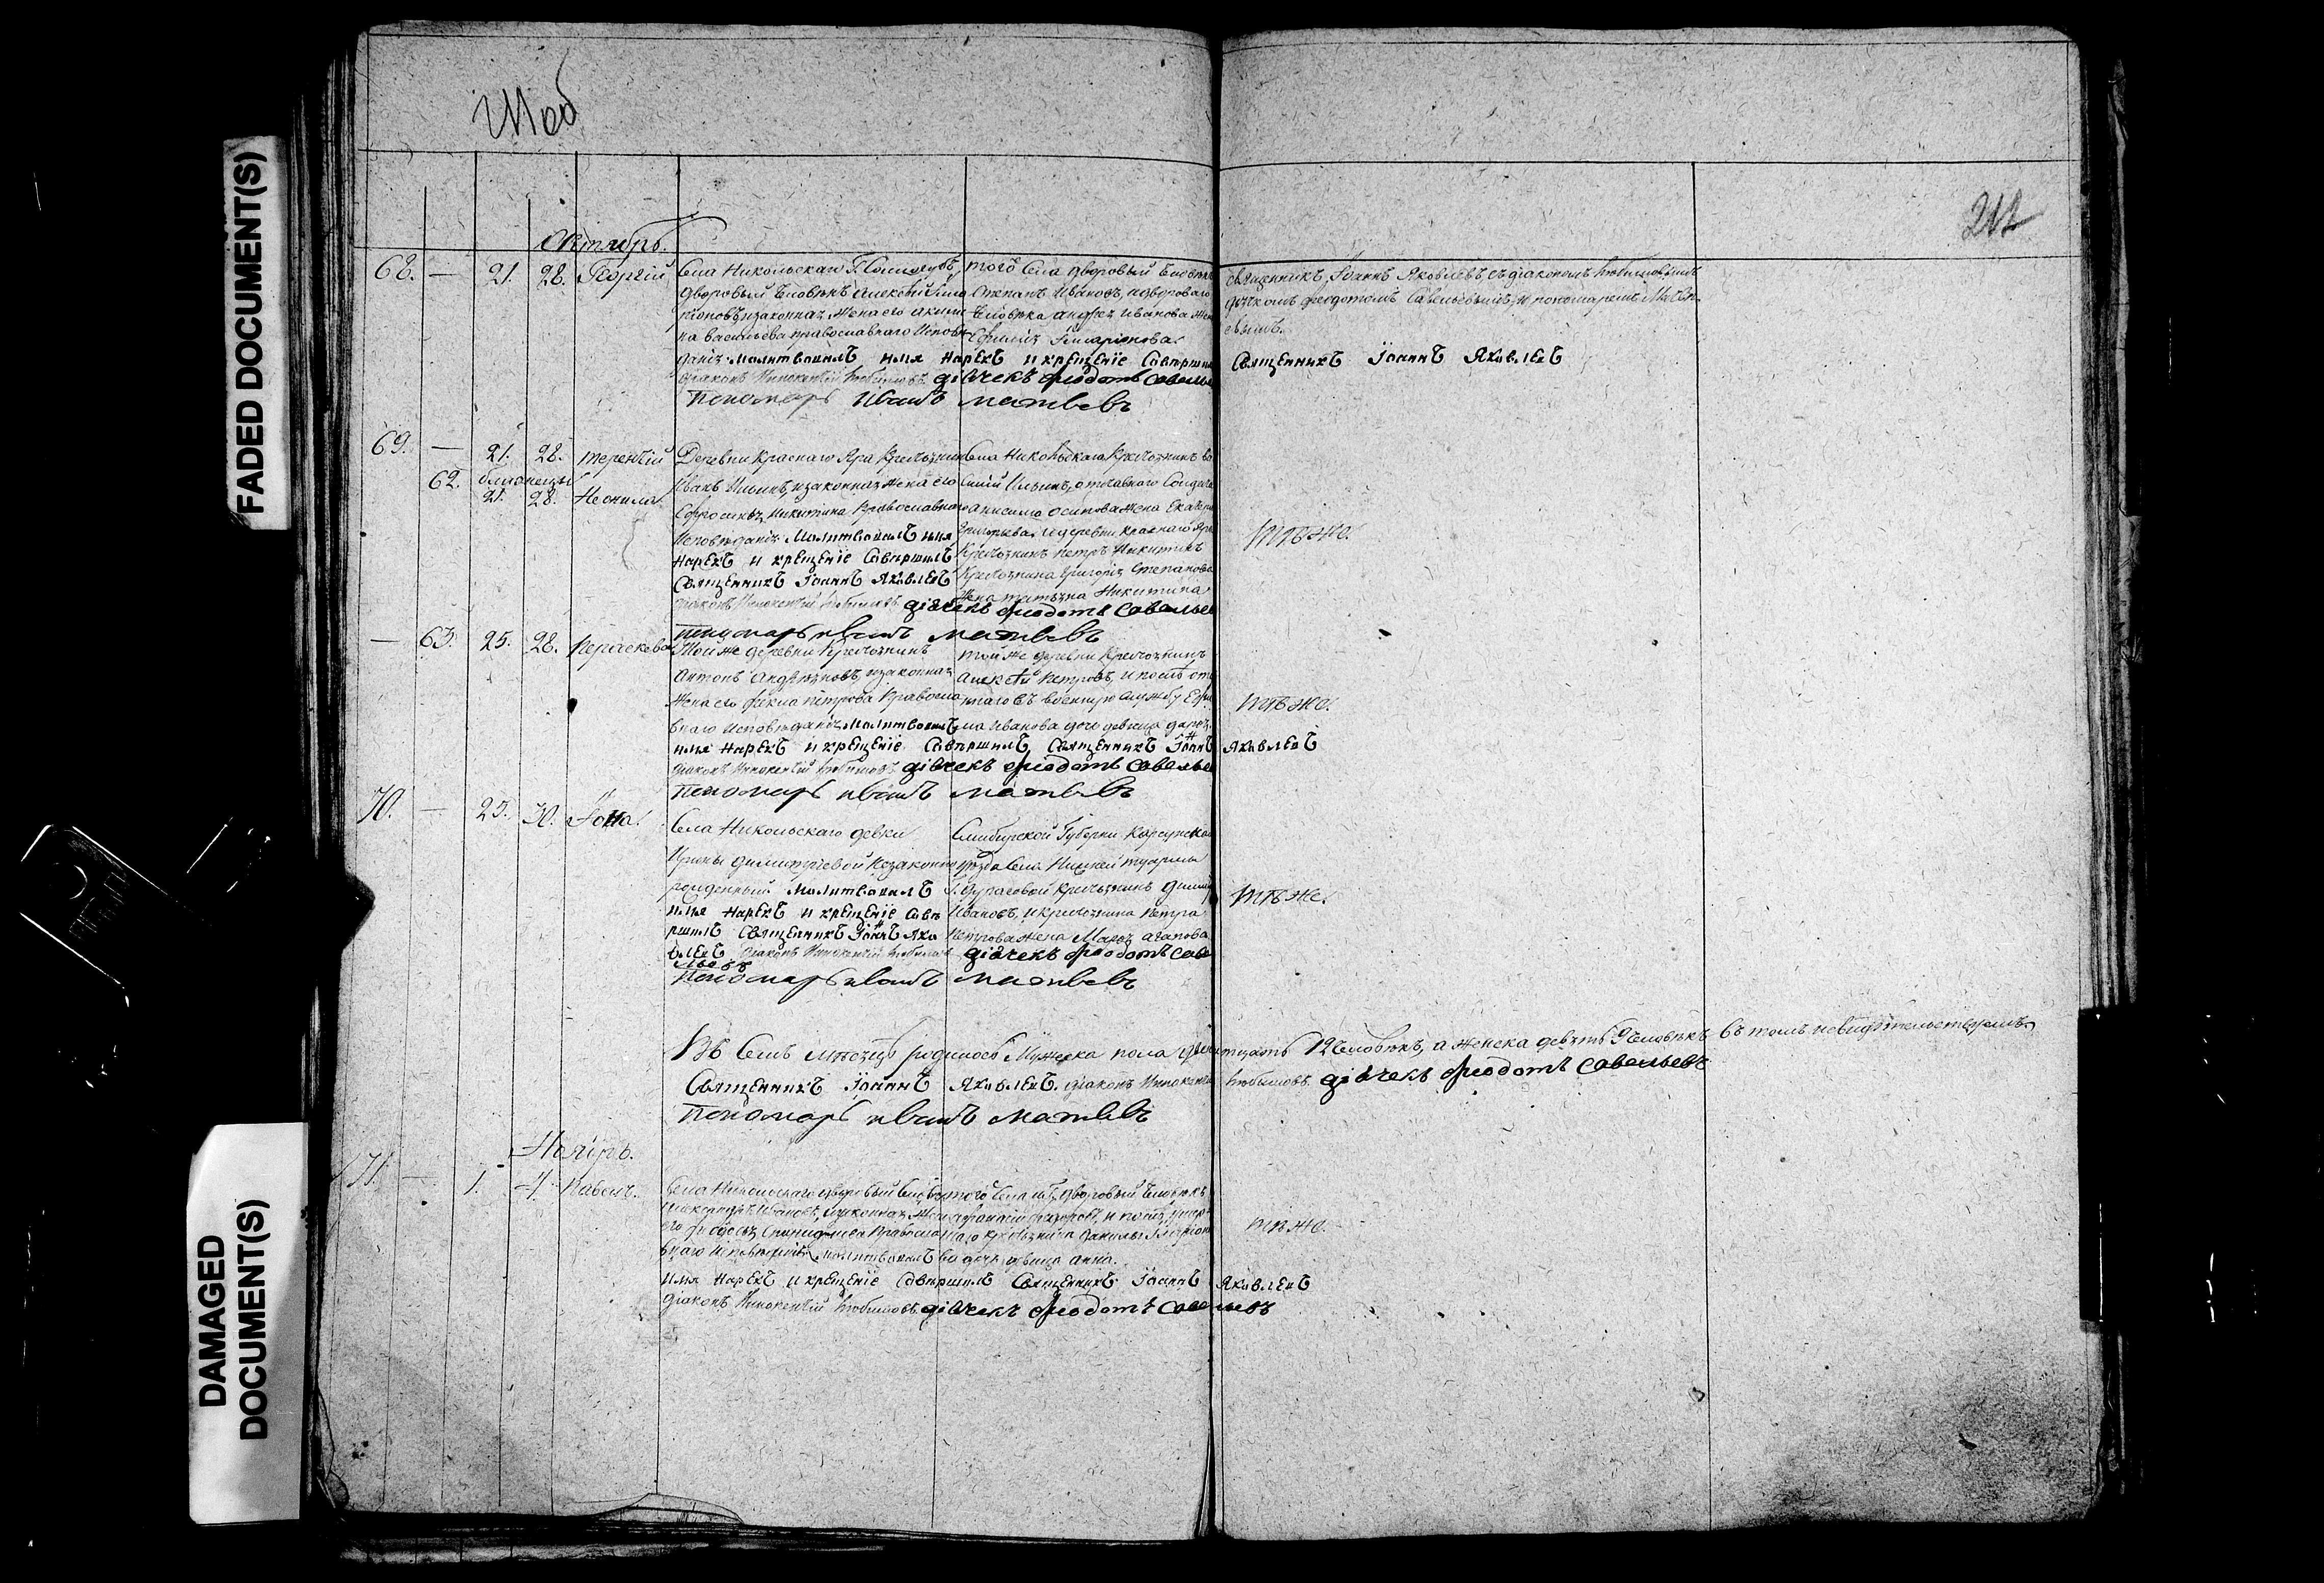 FADED DOCUMENT(S)
DAMAGED DOCUMENT(S)
212
Октябрь.
68. — 21. 28. Георгій
Села Никольскаго Г.
дворовый человѣкъ Алексѣй
и законная жена его
на Васильева православнаго исповѣ-
данія. Молитвовалъ имя нарекъ и крещеніе совершилъ
діаконъ Инокентій Любимовъ. діячекъ Феодотъ Савельевъ
Пономарь Иванъ Матвѣевъ
того села дворовый человѣкъ
Степанъ Ивановъ, и двороваго
человѣка Андрея Иванова жена
священникъ Іоаннъ Яковлевъ съ діакономъ Любимовымъ
дьячкомъ Феодотомъ Савельевымъ, и пономаремъ Матвѣ-
евымъ.
Священникъ Іоаннъ Яковлевъ
69. — 21. 28. Терентій
62. близнецы
21. 28. Неонила
Деревни Краснаго Яра крестьянинъ
Иванъ Ильинъ, и законная жена его
Никитина православнаго
исповѣданія. Молитвовалъ имя
нарекъ и крещеніе совершилъ
Священникъ Іоаннъ Яковлевъ
діаконъ Инокентій Любимовъ. діячекъ Феодотъ Савельевъ
Пономарь Иванъ Матвѣевъ
Села Никольскаго крестьянинъ Ва-
силій Ильинъ, отставного солдата
Анисима Осипова жена Екатерина
Григорьева. и деревни Краснаго Яра
крестьянинъ Петръ Никитинъ
крестьянина Григорія Степанова
жена Татьяна Никитина
тѣже.
— 63. 25. 28. Параскева
Той же деревни крестьянинъ
Антонъ Андреяновъ, и законная
жена его Фекла Петрова православ-
наго исповѣданія. Молитвовалъ
имя нарекъ и крещеніе совершилъ Священникъ Іоаннъ Яковлевъ
діаконъ Инокентій Любимовъ діячекъ Феодотъ Савельевъ
Пономарь Иванъ Матвѣевъ
той же деревни крестьянинъ
Алексѣй Петровъ, и
въ военную службу
ма Иванова дочь девица Дарья.
тѣже.
70. — 25. 30. Іона.
Села Никольскаго девки
Ирины Димитріевой незаконно
рожденный. Молитвовалъ
имя нарекъ и крещеніе совѣ
ршилъ Священникъ Іоаннъ Яко
влевъ діаконъ Инокентій Любимовъ діячекъ Феодотъ Саве
льевъ
Пономарь Иванъ Матвѣевъ
Симбирской губерни Карсунскаго
уѣзда села Нижней Туармы
крестьянинъ
Ивановъ, и крестьянина Петра
Петрова жена Марѳа Агапова
тѣже.
Въ семъ месяцѣ родилось мужеска пола двенатцать 12 человѣкъ, а женска девять 9 человѣкъ въ томъ и свидѣтельствуемъ
Священникъ Іоаннъ Яковлевъ. діаконъ Инокентій Любимовъ. діячекъ Феодотъ Савельевъ
Пономарь Иванъ Матвѣевъ
Ноябрь.
71. — 1. 4. Павелъ.
Села Никольскаго дворовый человѣкъ
Александръ Ивановъ, и законная жена
его Ѳеодосья православ-
наго исповѣданія. Молитвовалъ
имя нарекъ и крещеніе совершилъ Священникъ Іоаннъ Яковлевъ
діаконъ Инокентій Любимовъ. діячекъ Феодотъ Савельевъ
того села дворовый человѣкъ
крестьянина Данилы
ва дочь девица Анна.
тѣже.